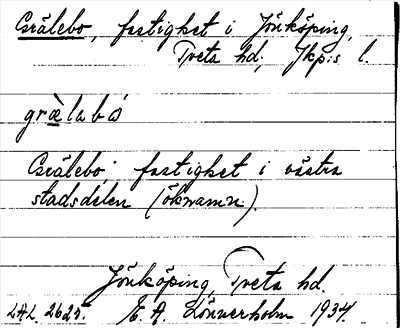 Grälebo, fastighet i Jönköping,
Tveta hd; Jkp:s l.
grälabó
Grälebo, fastighet i västra
stadsdelen (öknamn).
Jönköping, Tveta hd.
E. A. Lönnerholm 1934.